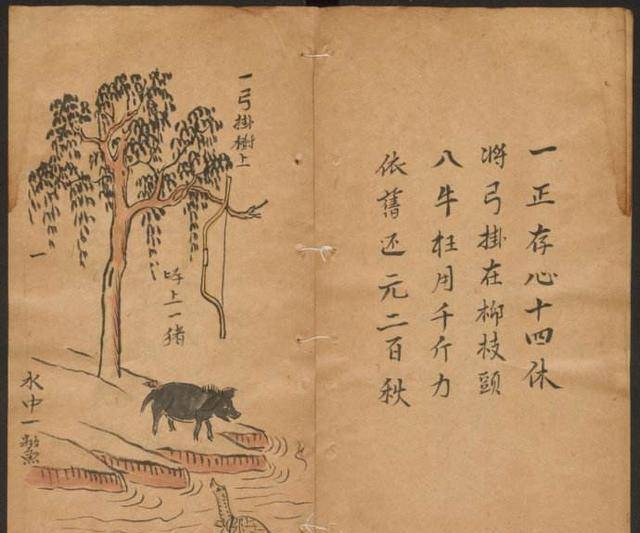 一正存心十四休
将弓掛在柳枝頭
八牛枉用千斤力
依舊还元二百秋
一弓掛樹上
上一猪
水中一